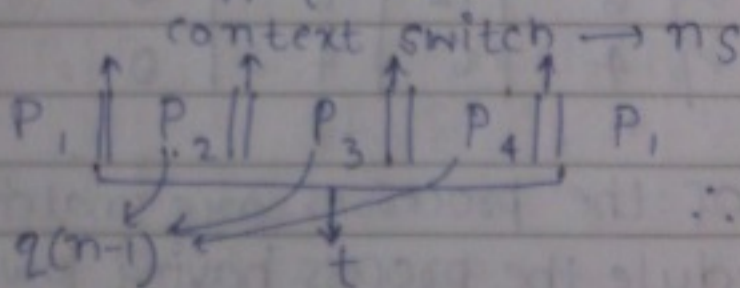 context switch → ns
P₁ || P₂ || P₃ || P₄ || P₁
∴
q(n-1) t